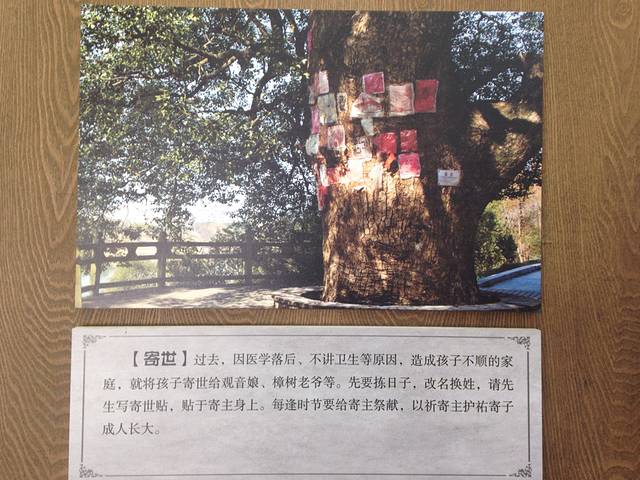 【寄世】过去，因医学落后、不讲卫生等原因，造成孩子不顺的家
庭，就将孩子寄世给观音娘、樟树老爷等。先要拣日子，改名换姓，请先
生写寄世贴，贴于寄主身上。每逢时节要给寄主祭献，以祈寄主护祐寄子
成人长大。